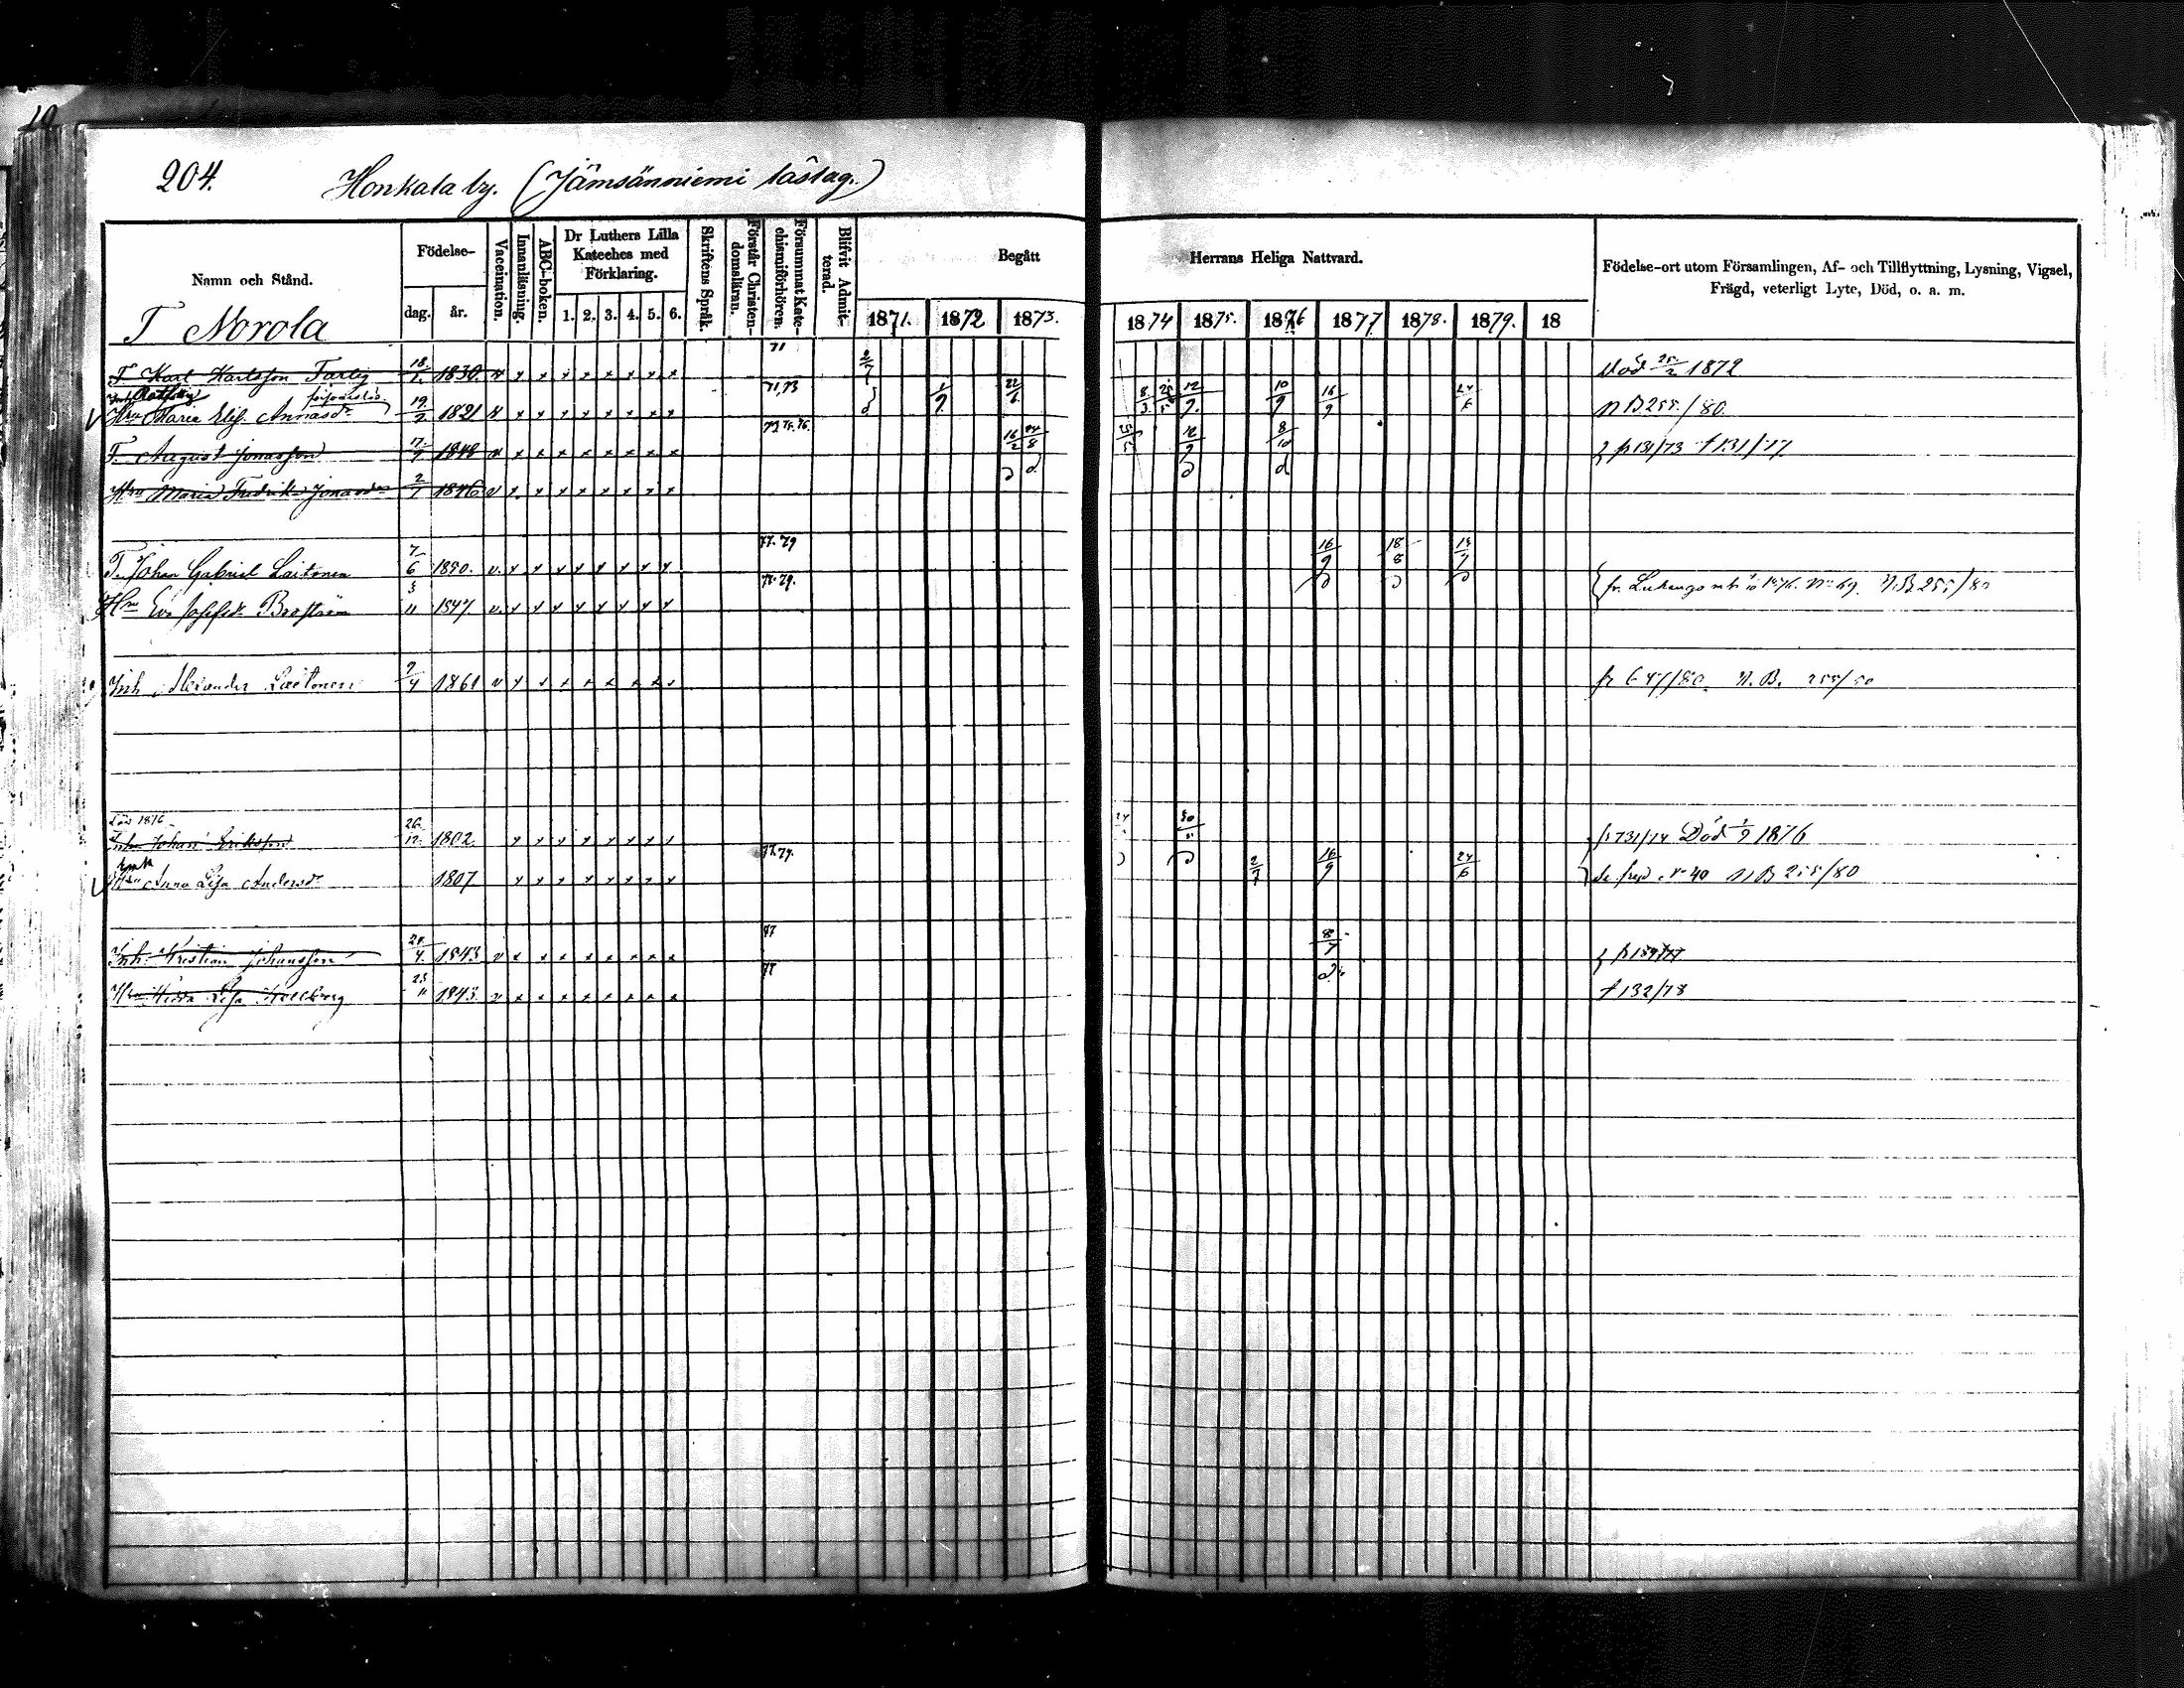 204. Honkala by. (Jämsänniemi låstag.)
Namn och Stånd. Födelse- dag. år. Vaccination. Innanläsning. ABC-boken. Dr Luthers Lilla Kateches med Förklaring. 1. 2. 3. 4. 5. 6. Skriftens Språk. Förstår Christendomsläran. Försummat Katechismiförhören. Blifvit Admitterad. Begått Herrans Heliga Nattvard. Födelse-ort utom Församlingen, Af- och Tillflyttning, Lysning, Vigsel, Frägd, veterligt Lyte, Död, o. a. m.
1871. 1872 1873. 1874 1875. 1876 1877 1878. 1879. 18
T Norola
T Karl Karlsson Farlig 18/1. 1830. v x x x x x x x x 71 2/7 död 25/2 1872
Hru Maria Elis. Annasdr 19/2 1821 v x x x x x x x x 71,73 1/9 22/6 8/3 12/9. 10/9 16/9 24/6 N B 255./80.
T. August Jonasson 17/9 1848 v x x x x x x x x 16/2 24/8 25/5 12/9 8/10 fr 131/73 t 131/77
Hru Maria Fredrika Jonasdr 2/7 1846 v x x x x x x x x
T. Johan Gabriel Laitonen 7/6 1850. v. x x x x x x x x 77. 79 16/9 18/8 15/7
Hru Eva Josefsdr Broström 3/" 1847 v. x x x x x x x x 77. 79. fr. 1876. No 69. N.B. 255/80
Inh Alexander Laitonen 9/4 1861 v x x x x x x x x fr 647/80. N. B. 255/80
Inh Johan Eriksson 26/12 1802 x x x x x x x x 30/5 fr 731/74 Död 1/9 1876
Enk Anna Lisa Andersdr 1807 x x x x x x x x 77. 79. 2/7 16/9 24/6 No 40 N B 255/80
Inh. Kristian Johansson 1843 v x x x x x x x x 77 8/7
Hru Lisa 23/" 1843. v x x x x x x x x 77 t 132/78